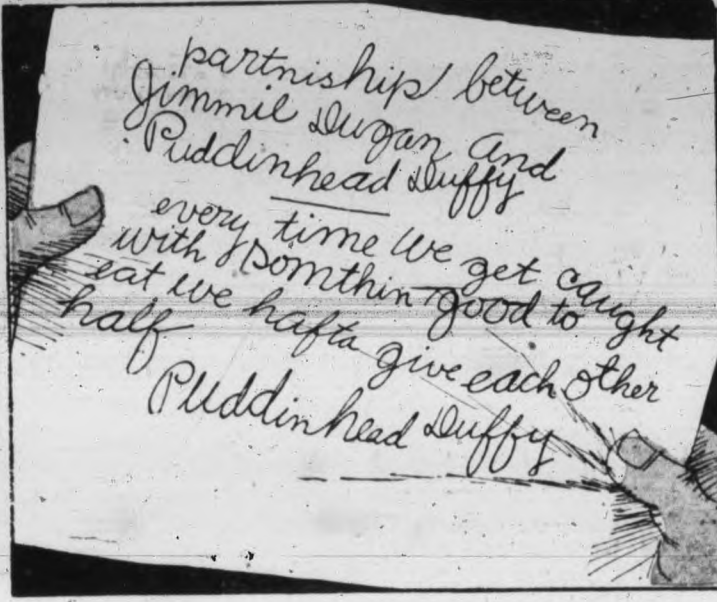 partniship between
Jimmie Dugan and
Puddinhead Duffy
every time we get caught
with somthin good to
eat we hafta give each other
half
Puddinhead Duffy